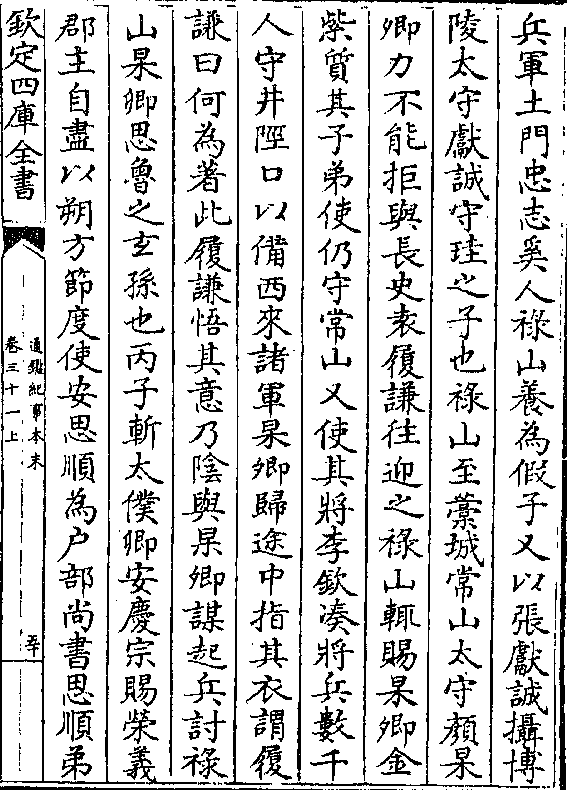 兵軍土門忠志奚人祿山養為假子又以張獻誠攝博
陵太守獻誠守珪之子也祿山至藁城常山太守顔杲
卿力不能拒與長史袁履謙往迎之祿山輒賜杲卿金
紫質其子弟使仍守常山又使其將李欽湊將兵數千
人守井陘口以備西來諸軍杲卿歸途中指其衣謂履
謙曰何為著此履謙悟其意乃陰與杲卿謀起兵討祿
山杲卿思魯之玄孫也丙子斬太僕卿安慶宗賜榮義
郡主自盡以朔方節度使安思順為户部尚書思順弟
欽定四庫全書
通鑑紀事本末
卷三十一上
五十